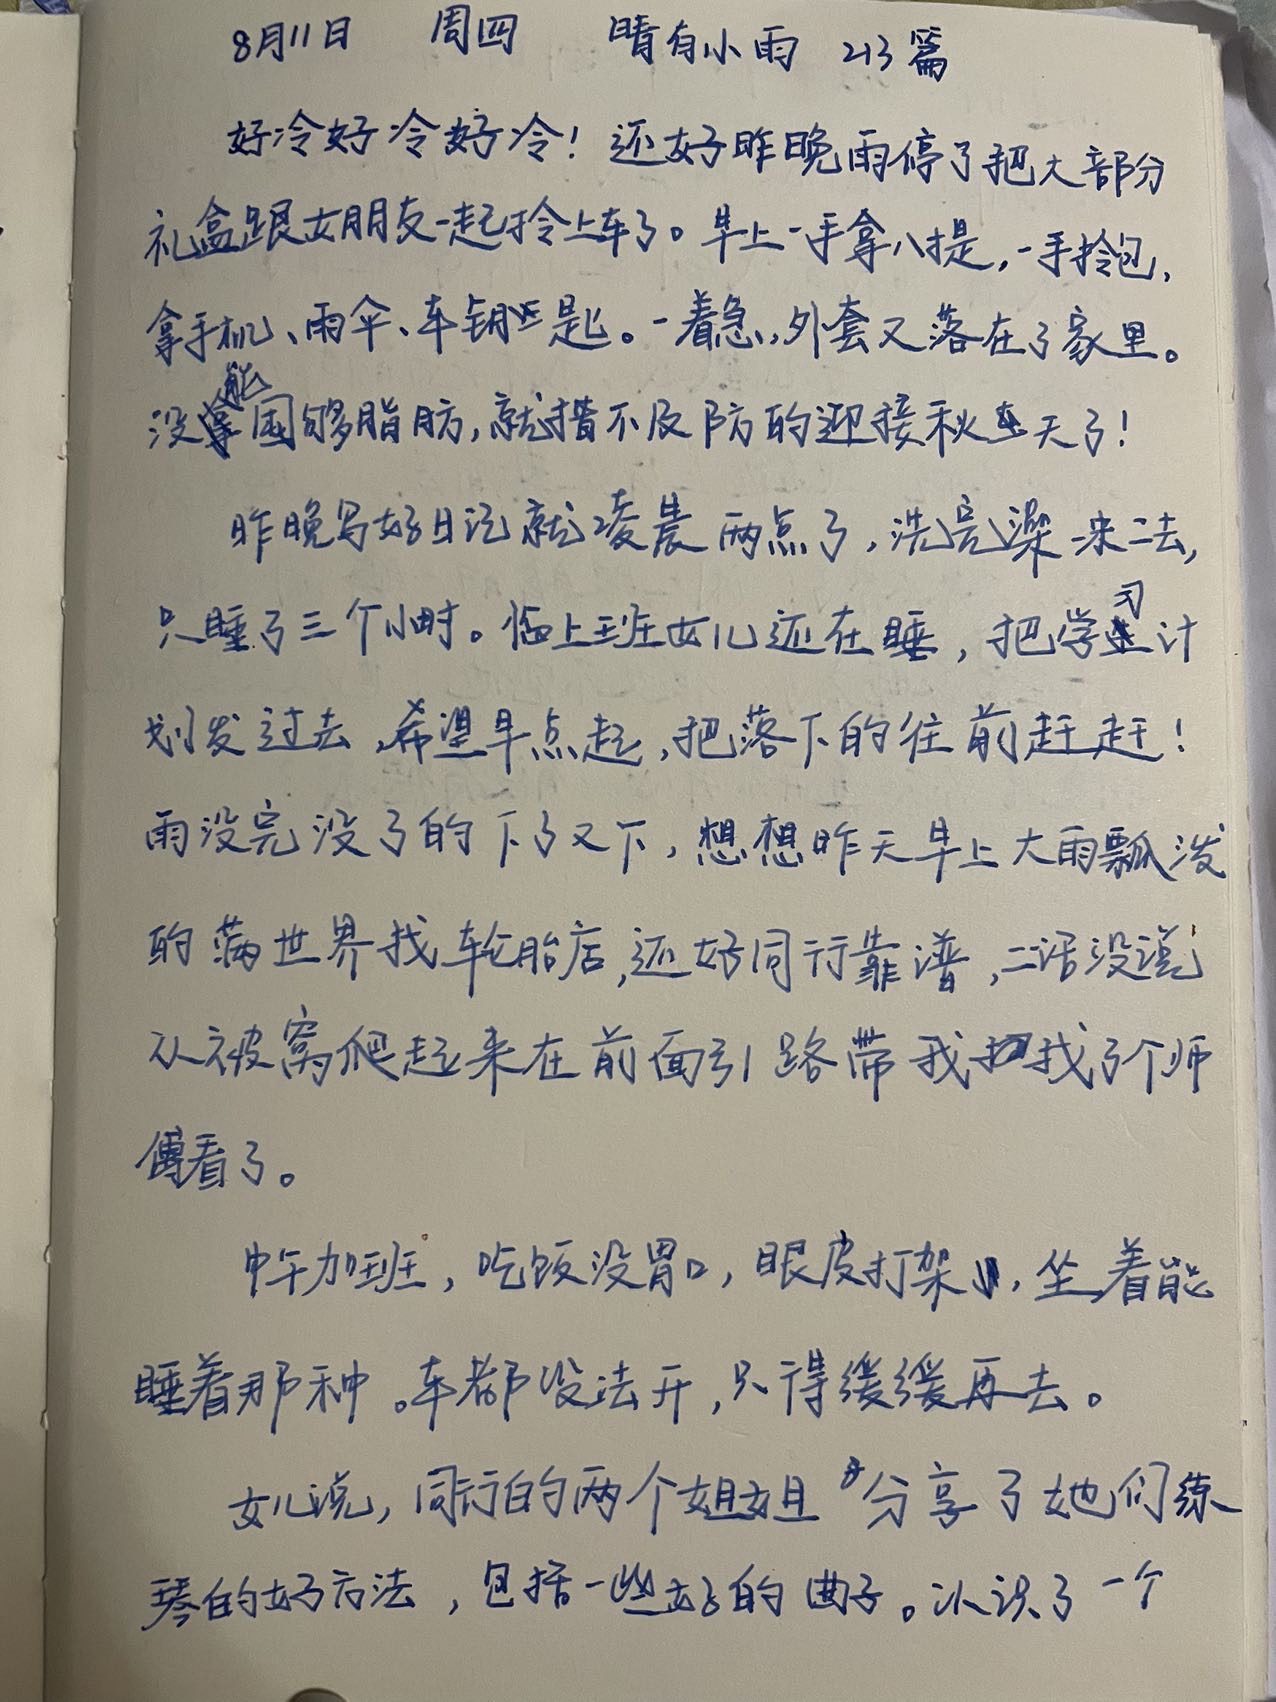 8月11日 周四 晴有小雨 213篇
好冷好冷好冷！还好昨晚雨停了把大部分
礼盒跟女朋友一起拎上车了。早上一手拿八提，一手拎包，
拿手机、雨伞、车钥匙。一着急，外套又落在了家里。
没能囤够脂肪，就措不及防的迎接秋天了！
昨晚写好日记就凌晨两点了，洗完澡一来二去，
只睡了三个小时。临上班女儿还在睡，把学习计
划发过去，希望早点起，把落下的往前赶赶！
雨没完没了的下了又下，想想昨天早上大雨瓢泼
的满世界找轮胎店，还好同行靠谱，二话没说
从被窝爬起来在前面引路带我找了个师
傅看了。
中午加班，吃饭没胃口，眼皮打架，坐着能
睡着那种。车都没法开，只得缓缓再去。
女儿说，同行的两个姐姐分享了她们练
琴的好方法，包括一些好的曲子。认识了一个